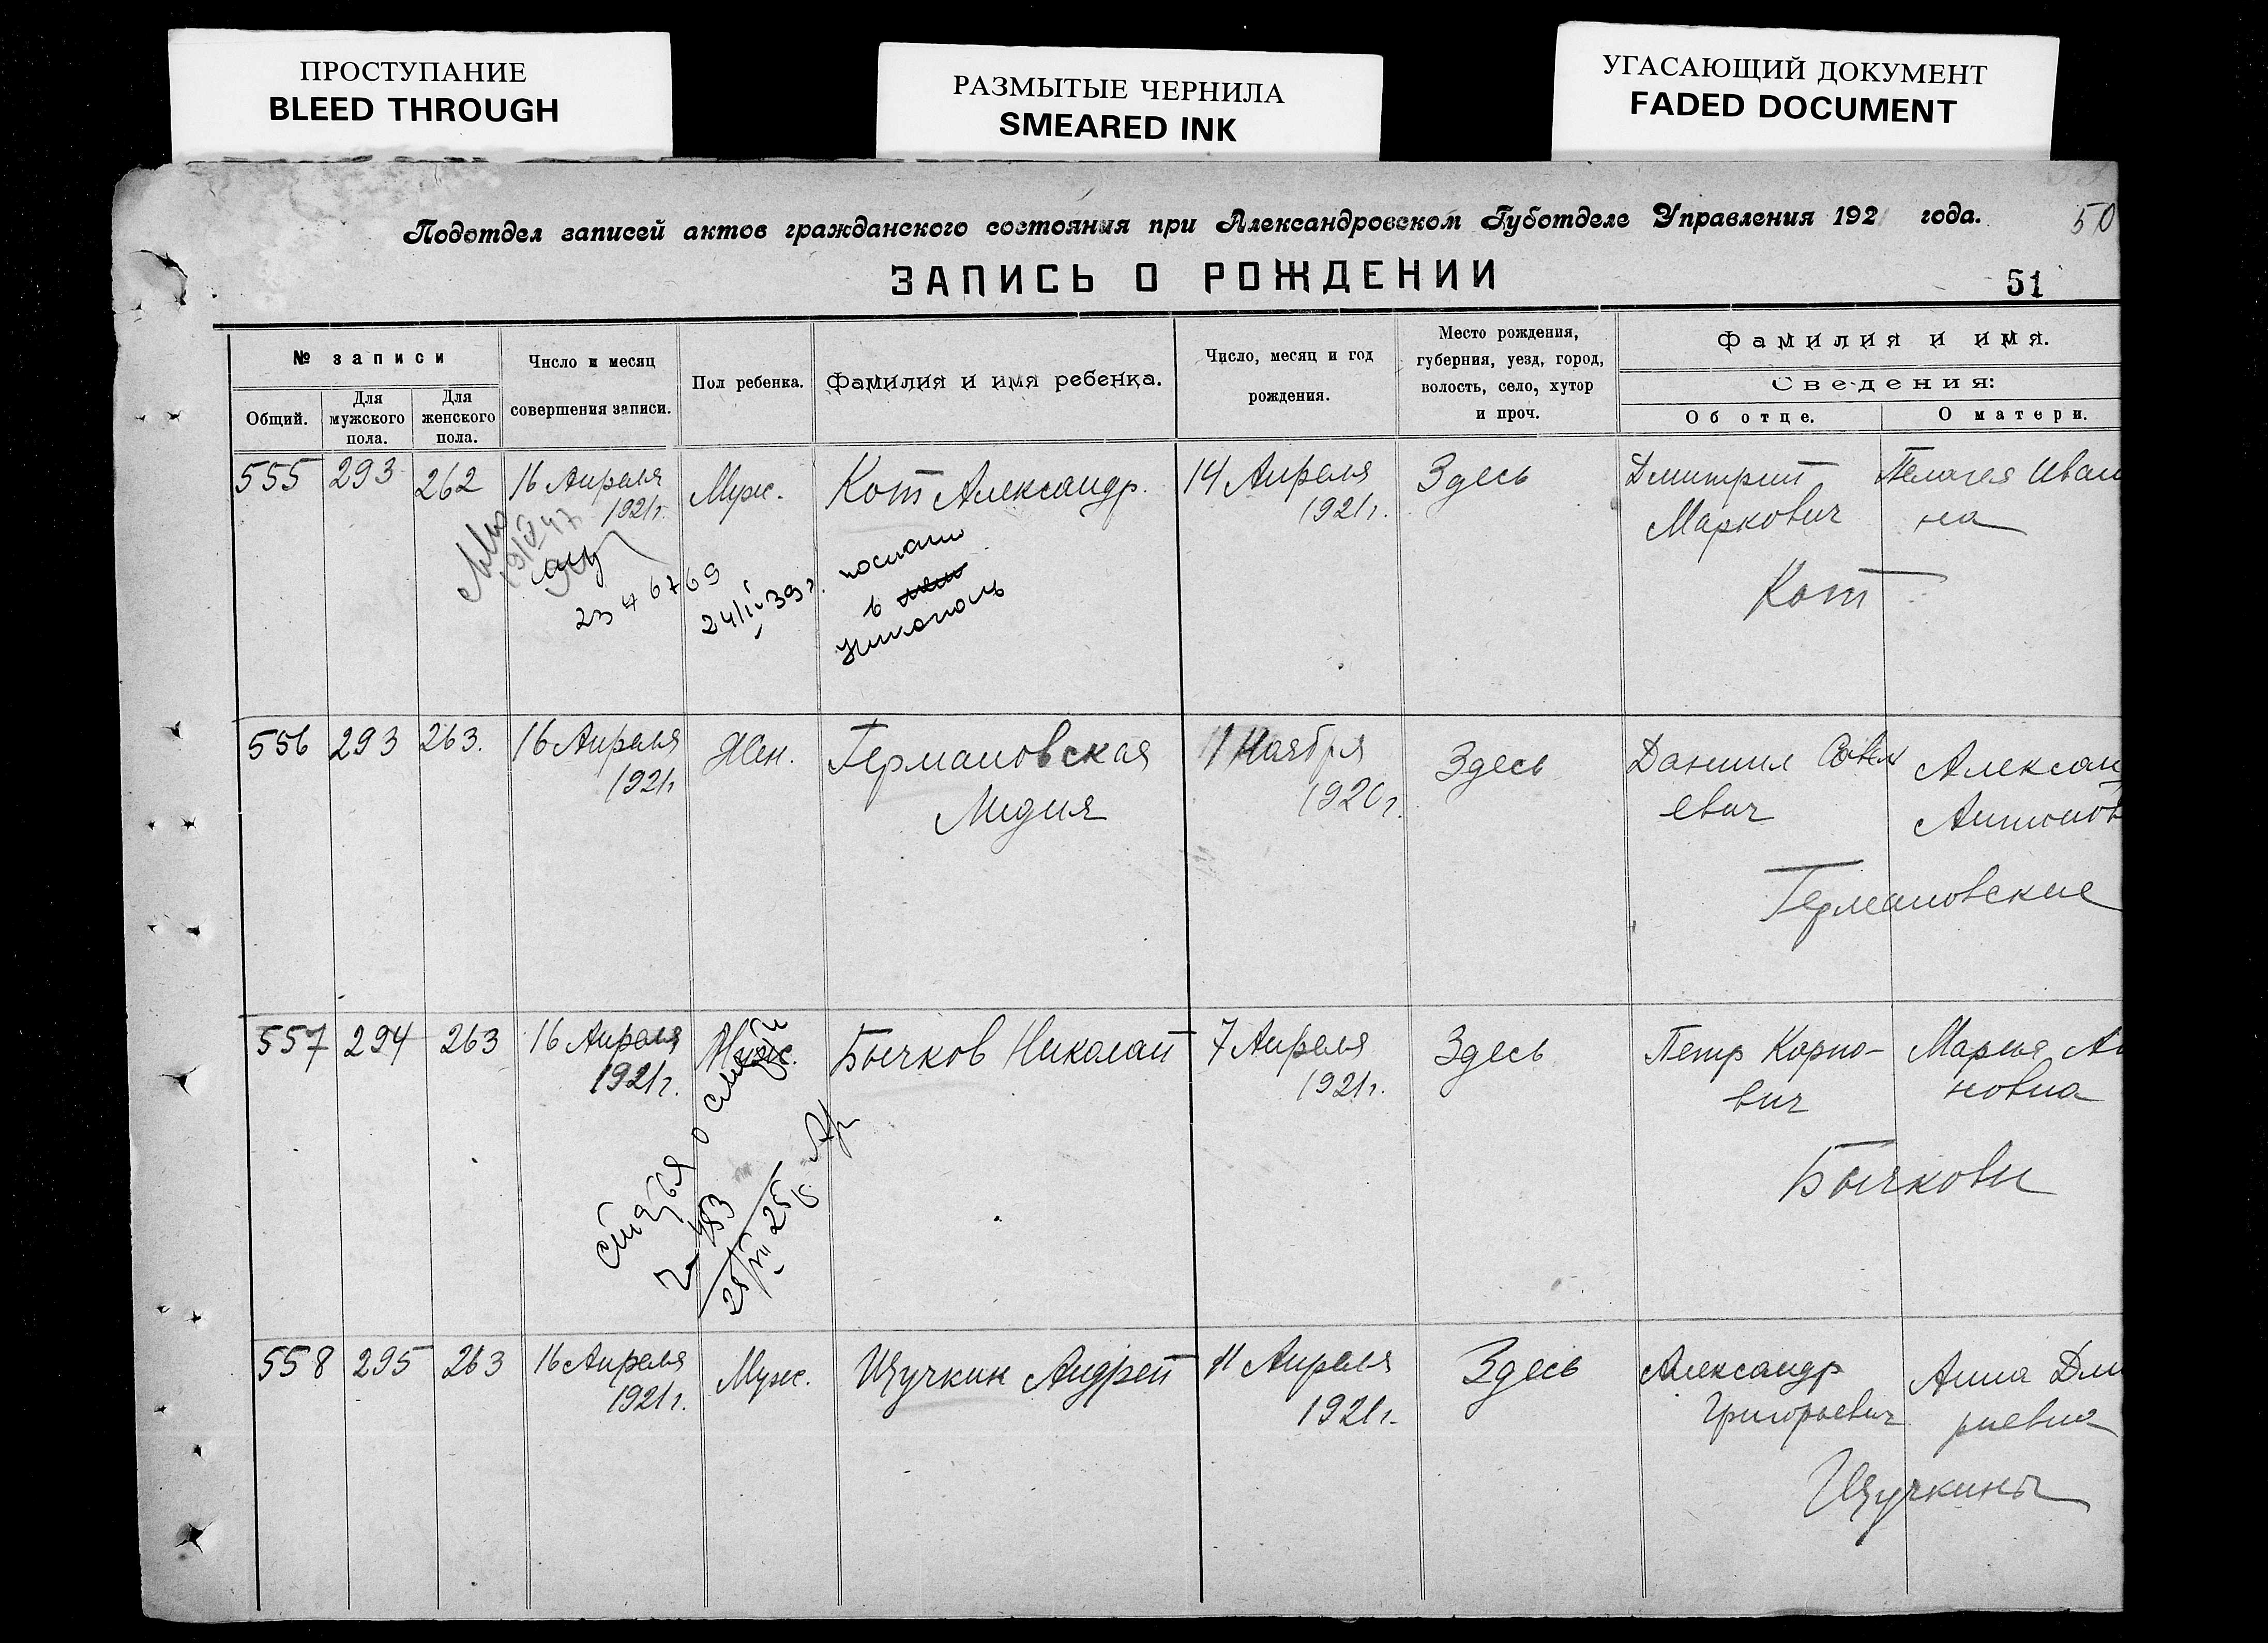 ПРОСТУПАНИЕ
BLEED THROUGH
РАЗМЫТЫЕ ЧЕРНИЛА
SMEARED INK
УГАСАЮЩИЙ ДОКУМЕНТ
FADED DOCUMENT
Подотдел записей актов гражданского состояния при Александровском Губотделе Управления 192 года.
50
ЗАПИСЬ О РОЖДЕНИИ
51
№ записи
Общий.
Для мужского пола.
Для женского пола.
Число и месяц
совершения записи.
Пол ребенка.
Фамилия и имя ребенка.
Число, месяц и год
рождения.
Место рождения,
губерния, уезд, город,
волость, село, хутор
и проч.
Фамилия и имя.
Сведения:
Об отце.
О матери.
555 293 262 16 Апреля Муж. Кот Александр. 14 Апреля Здесь Дмитрий Пелагея Иван
1921г. 1921г. Маркович на
Кот
24/IV 39г. послано
в
Никополь
556 293 263. 16 Апреля Жен. Германовская 11 Ноября Здесь Даниил Савел Алексан
1921г Лидия 1920г. евич Антонов
Германовские
557 294 263 16 Апреля Муж. Бычков Николай 7 Апреля Здесь Петр Карпо- Мария
1921г. 1921г. вич новна
Бычковы
558 295 263 16 Апреля Муж. Щучкин Андрей 11 Апреля Здесь Александр Анна Дми
1921г. 1921г. Григорьевич риевна
Щучкины